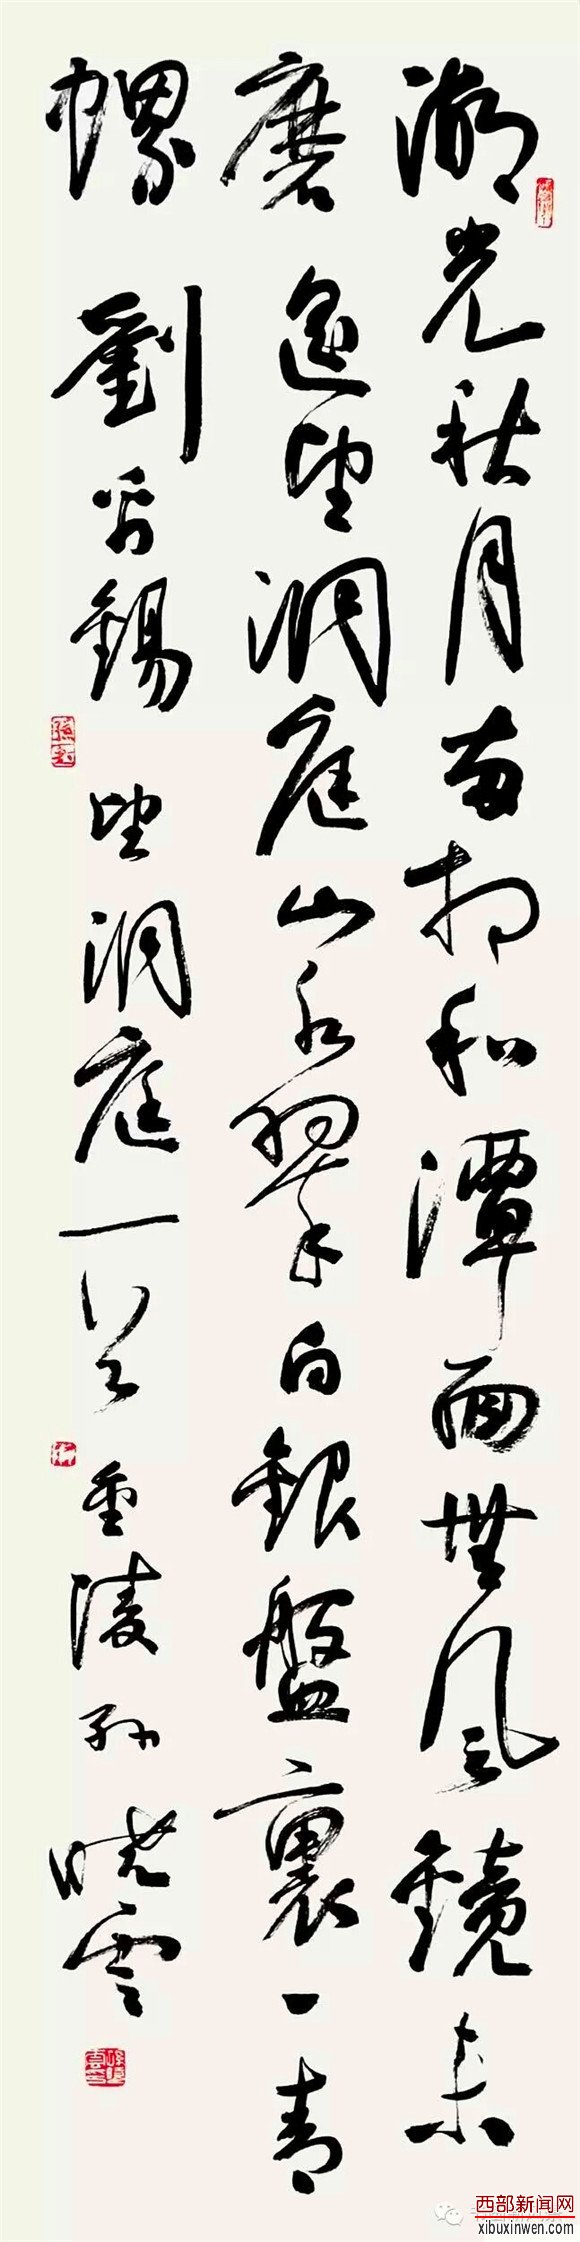 湖光秋月兩相和潭面無風鏡未
磨遙望洞庭山水翠白銀盤裏一青
螺 劉禹錫 望洞庭一首 金陵孫曉雲
西部新闻网
xibuxinwen.com